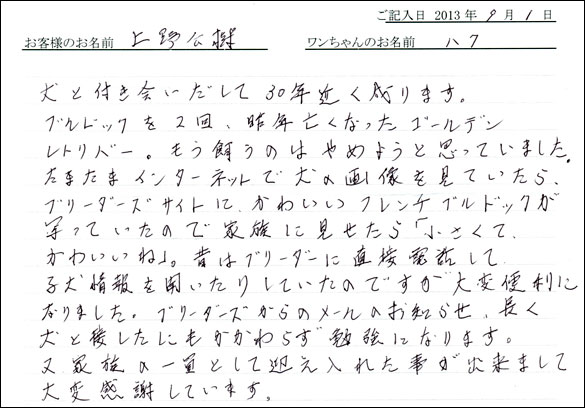 ご記入日 2013 年 9 月 1 日
お客様のお名前 上野公樹 ワンちゃんのお名前 ハク
犬と付き会いだして30年近く成ります。
ブルドックを2回、昨年亡くなったゴールデン
レトリバー。もう飼うのはやめようと思っていました。
たまたまインターネットで犬の画像を見ていたら、
ブリーダーズサイトに、かわいいフレンチブルドックが
写っていたので家族に見せたら「小さくて、
かわいいね」。昔はブリーダーに直接電話して
子犬情報を聞いたりしていたのですが大変便利に
なりました。ブリーダーズからのメールのお知らせ、長く
犬と接したにもかかわらず勉強になります。
又家族の一員として迎え入れた事が出来まして
大変感謝しています。